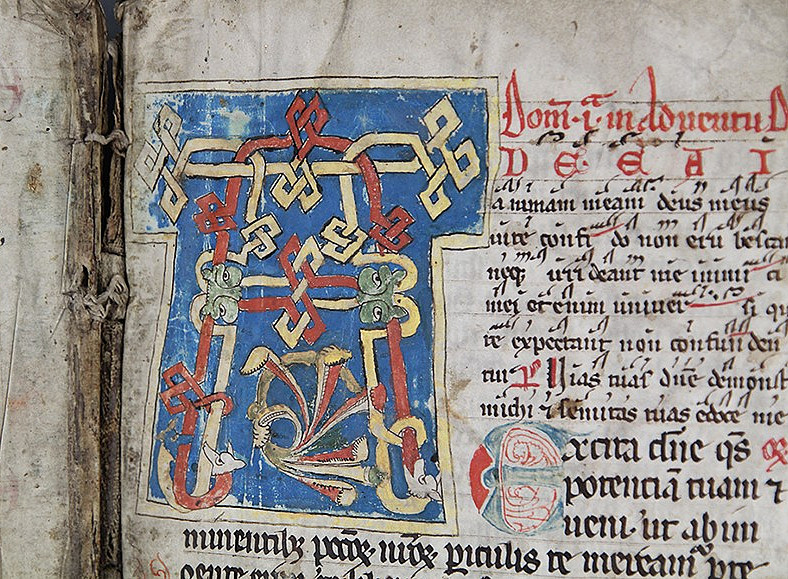 Dom̄. i.ª in aduentu D
D E E A I
animam meam deus meus
in te confi do non eru bescam
neqꝫ irri deant me inimi ci
mei et enim uniuer si qu
te expectant non confun den
tur Ps Vias tuas dn̄e demonst
michi ⁊ semitas tuas edoce me
Excita dn̄e qs̄
potenciā tuam ⁊
ueni ut ab im
minentibꝫ pccōꝝ nr̄oꝝ periculis te mereamᷣ pro